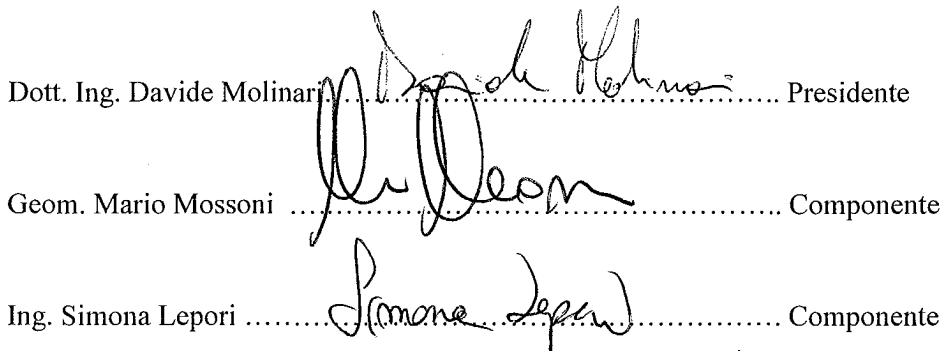 Dott. Ing. Davide Molinari Davide Molinari Presidente
Geom. Mario Mossoni Componente
Ing. Simona Lepori Simona Lepori Componente